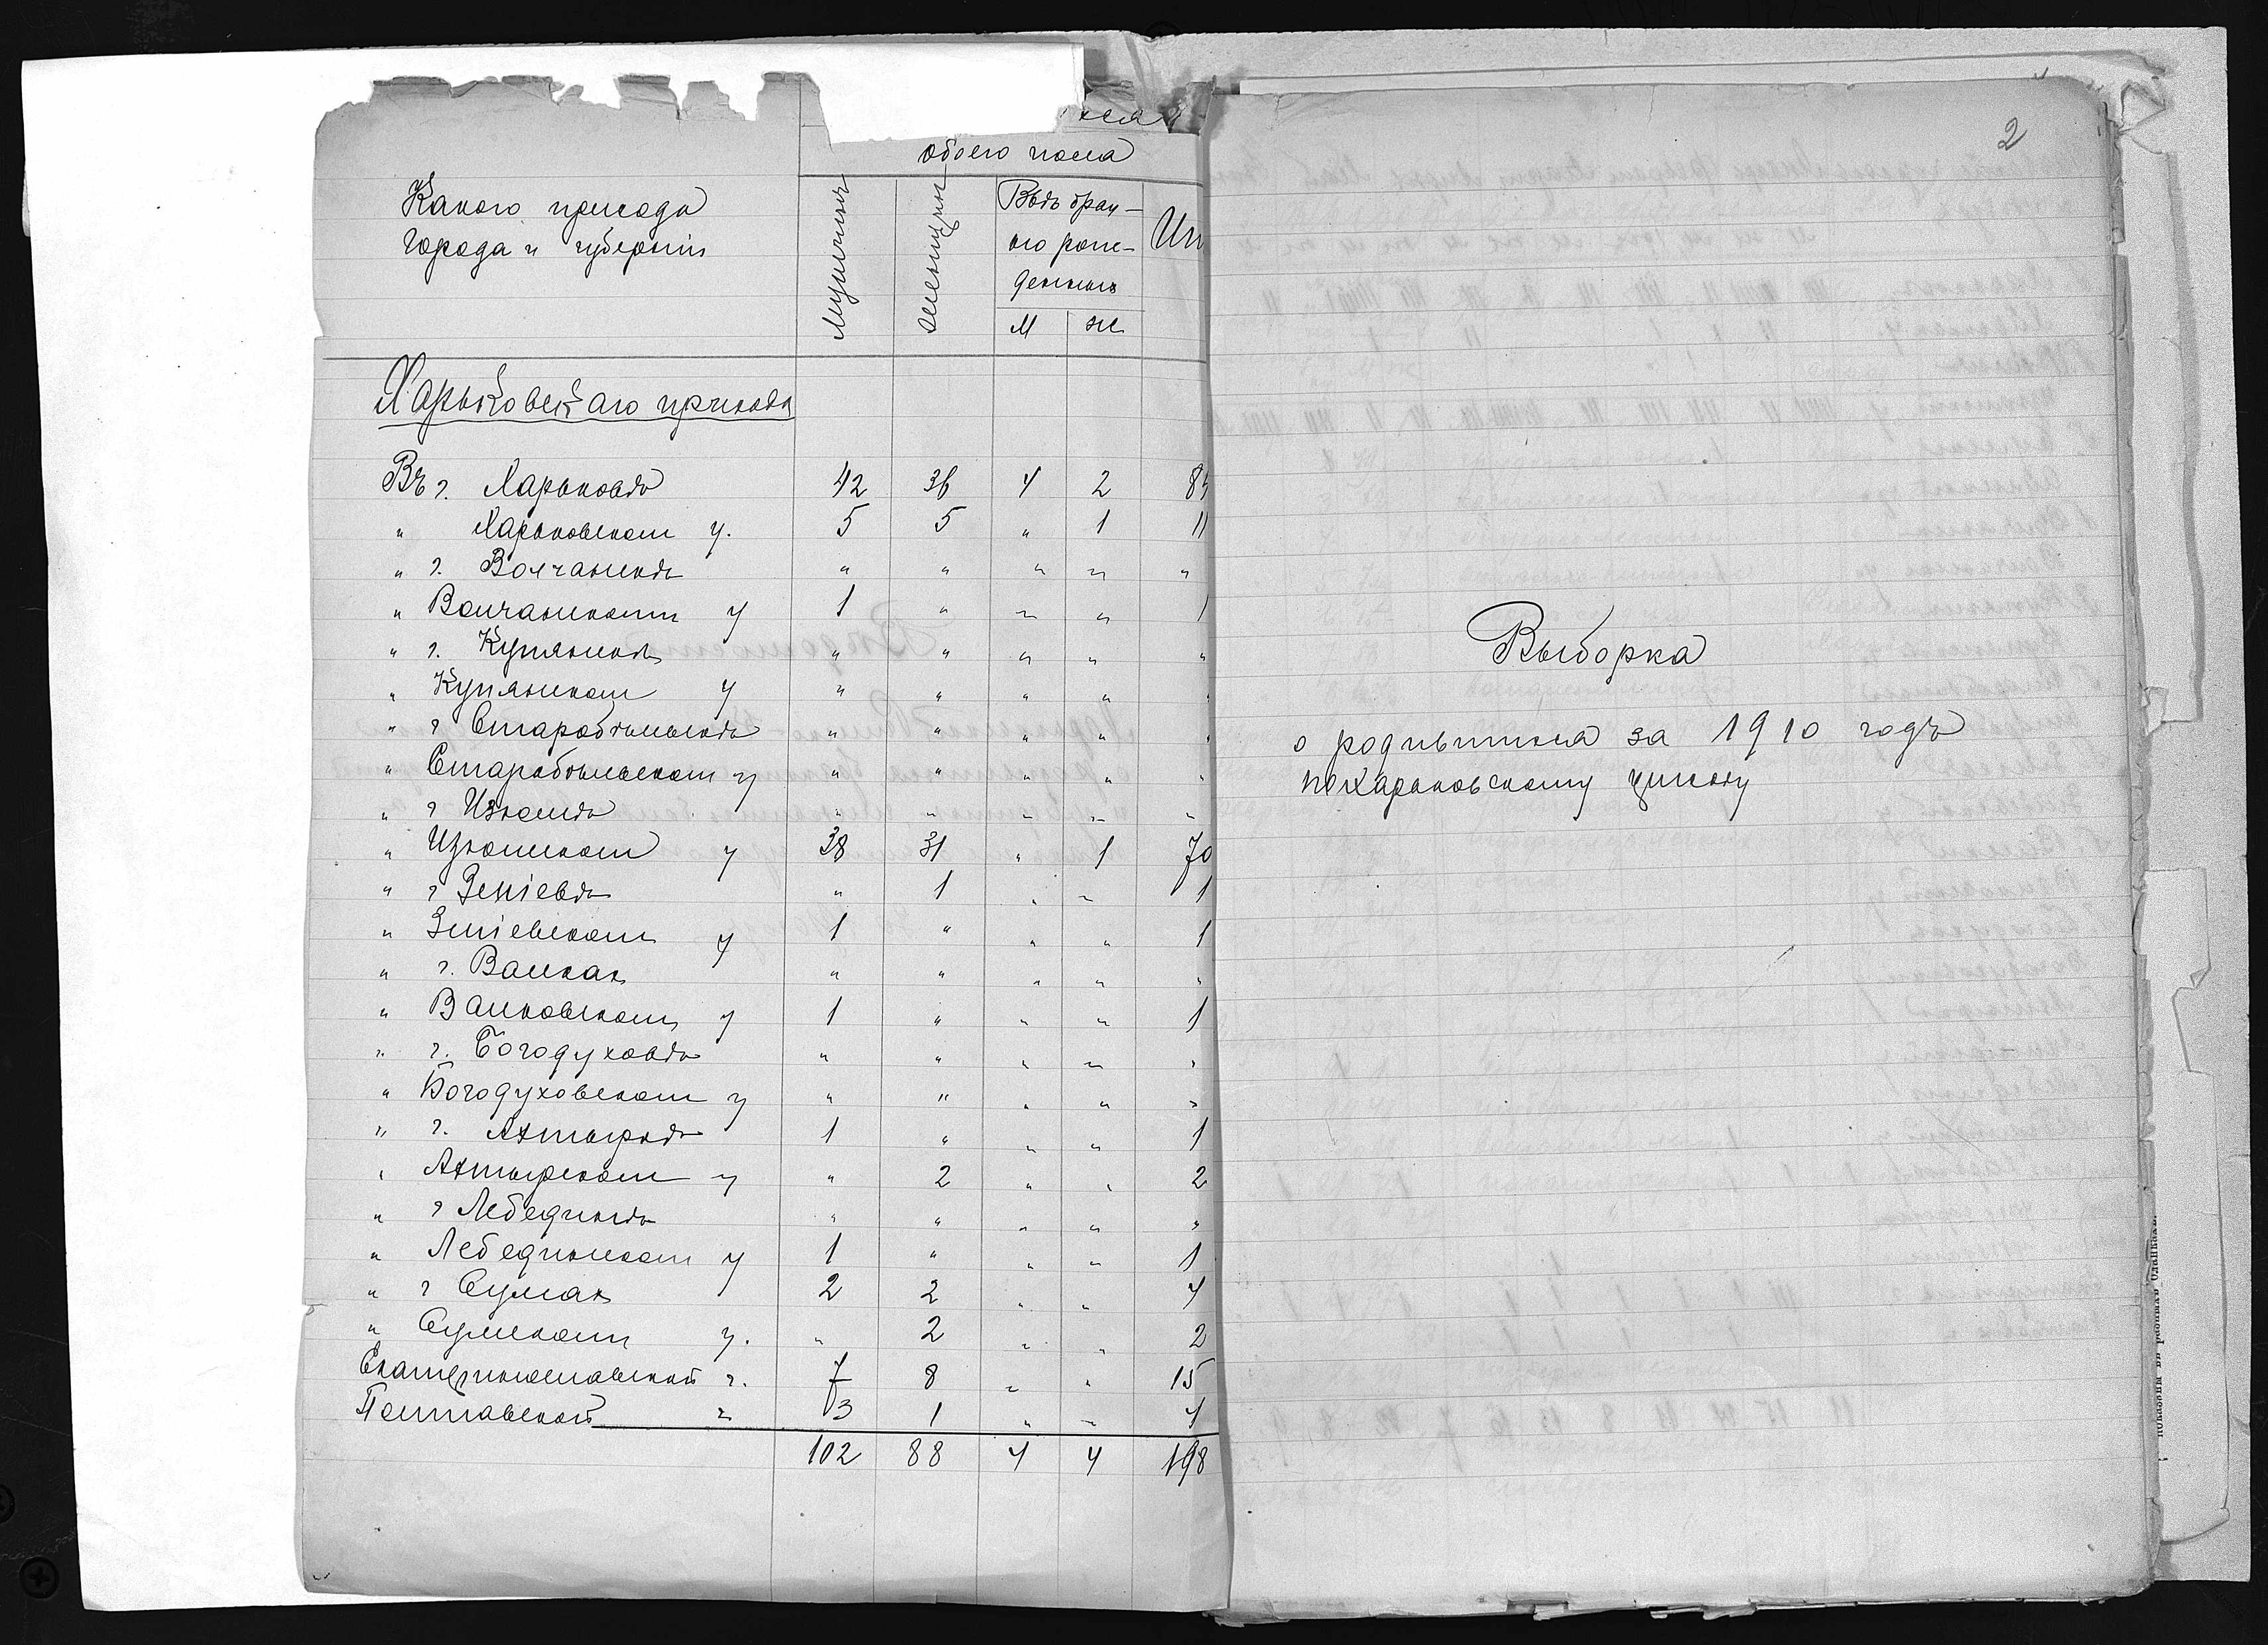 обоего пола
Какого прихода
города и губернiи
Мужчины
женщины
Внѣ брач-
но рож-
денныхъ
М ж
Харьковскаго прихода
Въ г. Харьковѣ 42 36 4 2
" Харьковскомъ у. 5 5 " 1 11
" г. Волчанскѣ " " " " "
" Волчанскомъ у 1 " " " 1
" г. Купянскѣ " " " " "
" Купянскомъ у " " " "
" г Старобѣльскѣ " " " "
" Старобѣльскомъ у " " " " "
" г Изюмѣ " " " " "
" Изюмскомъ у 38 31 " 1 70
" г Змiевѣ " 1 " " 1
" Змiевскомъ у 1 " " " 1
" г. Валкахъ " " " " "
" Валковскомъ у 1 " " " 1
" г. Богодуховѣ " " " " "
" Богодуховскомъ у " " " " "
" г. Ахтыркѣ 1 " " " 1
" Ахтырскомъ у " 2 " " 2
" г Лебединѣ " " " " "
" Лебединскомъ у 1 " " " 1
" г Сумахъ 2 2 " " 4
" Сумскомъ у. " 2 " " 2
Екатеринославской г. 7 8 " " 15
Полтавской " 3 1 " " 4
102 88 4 4 198
2
Выборка
о родившихся за 1910 годъ
по Харьковскому